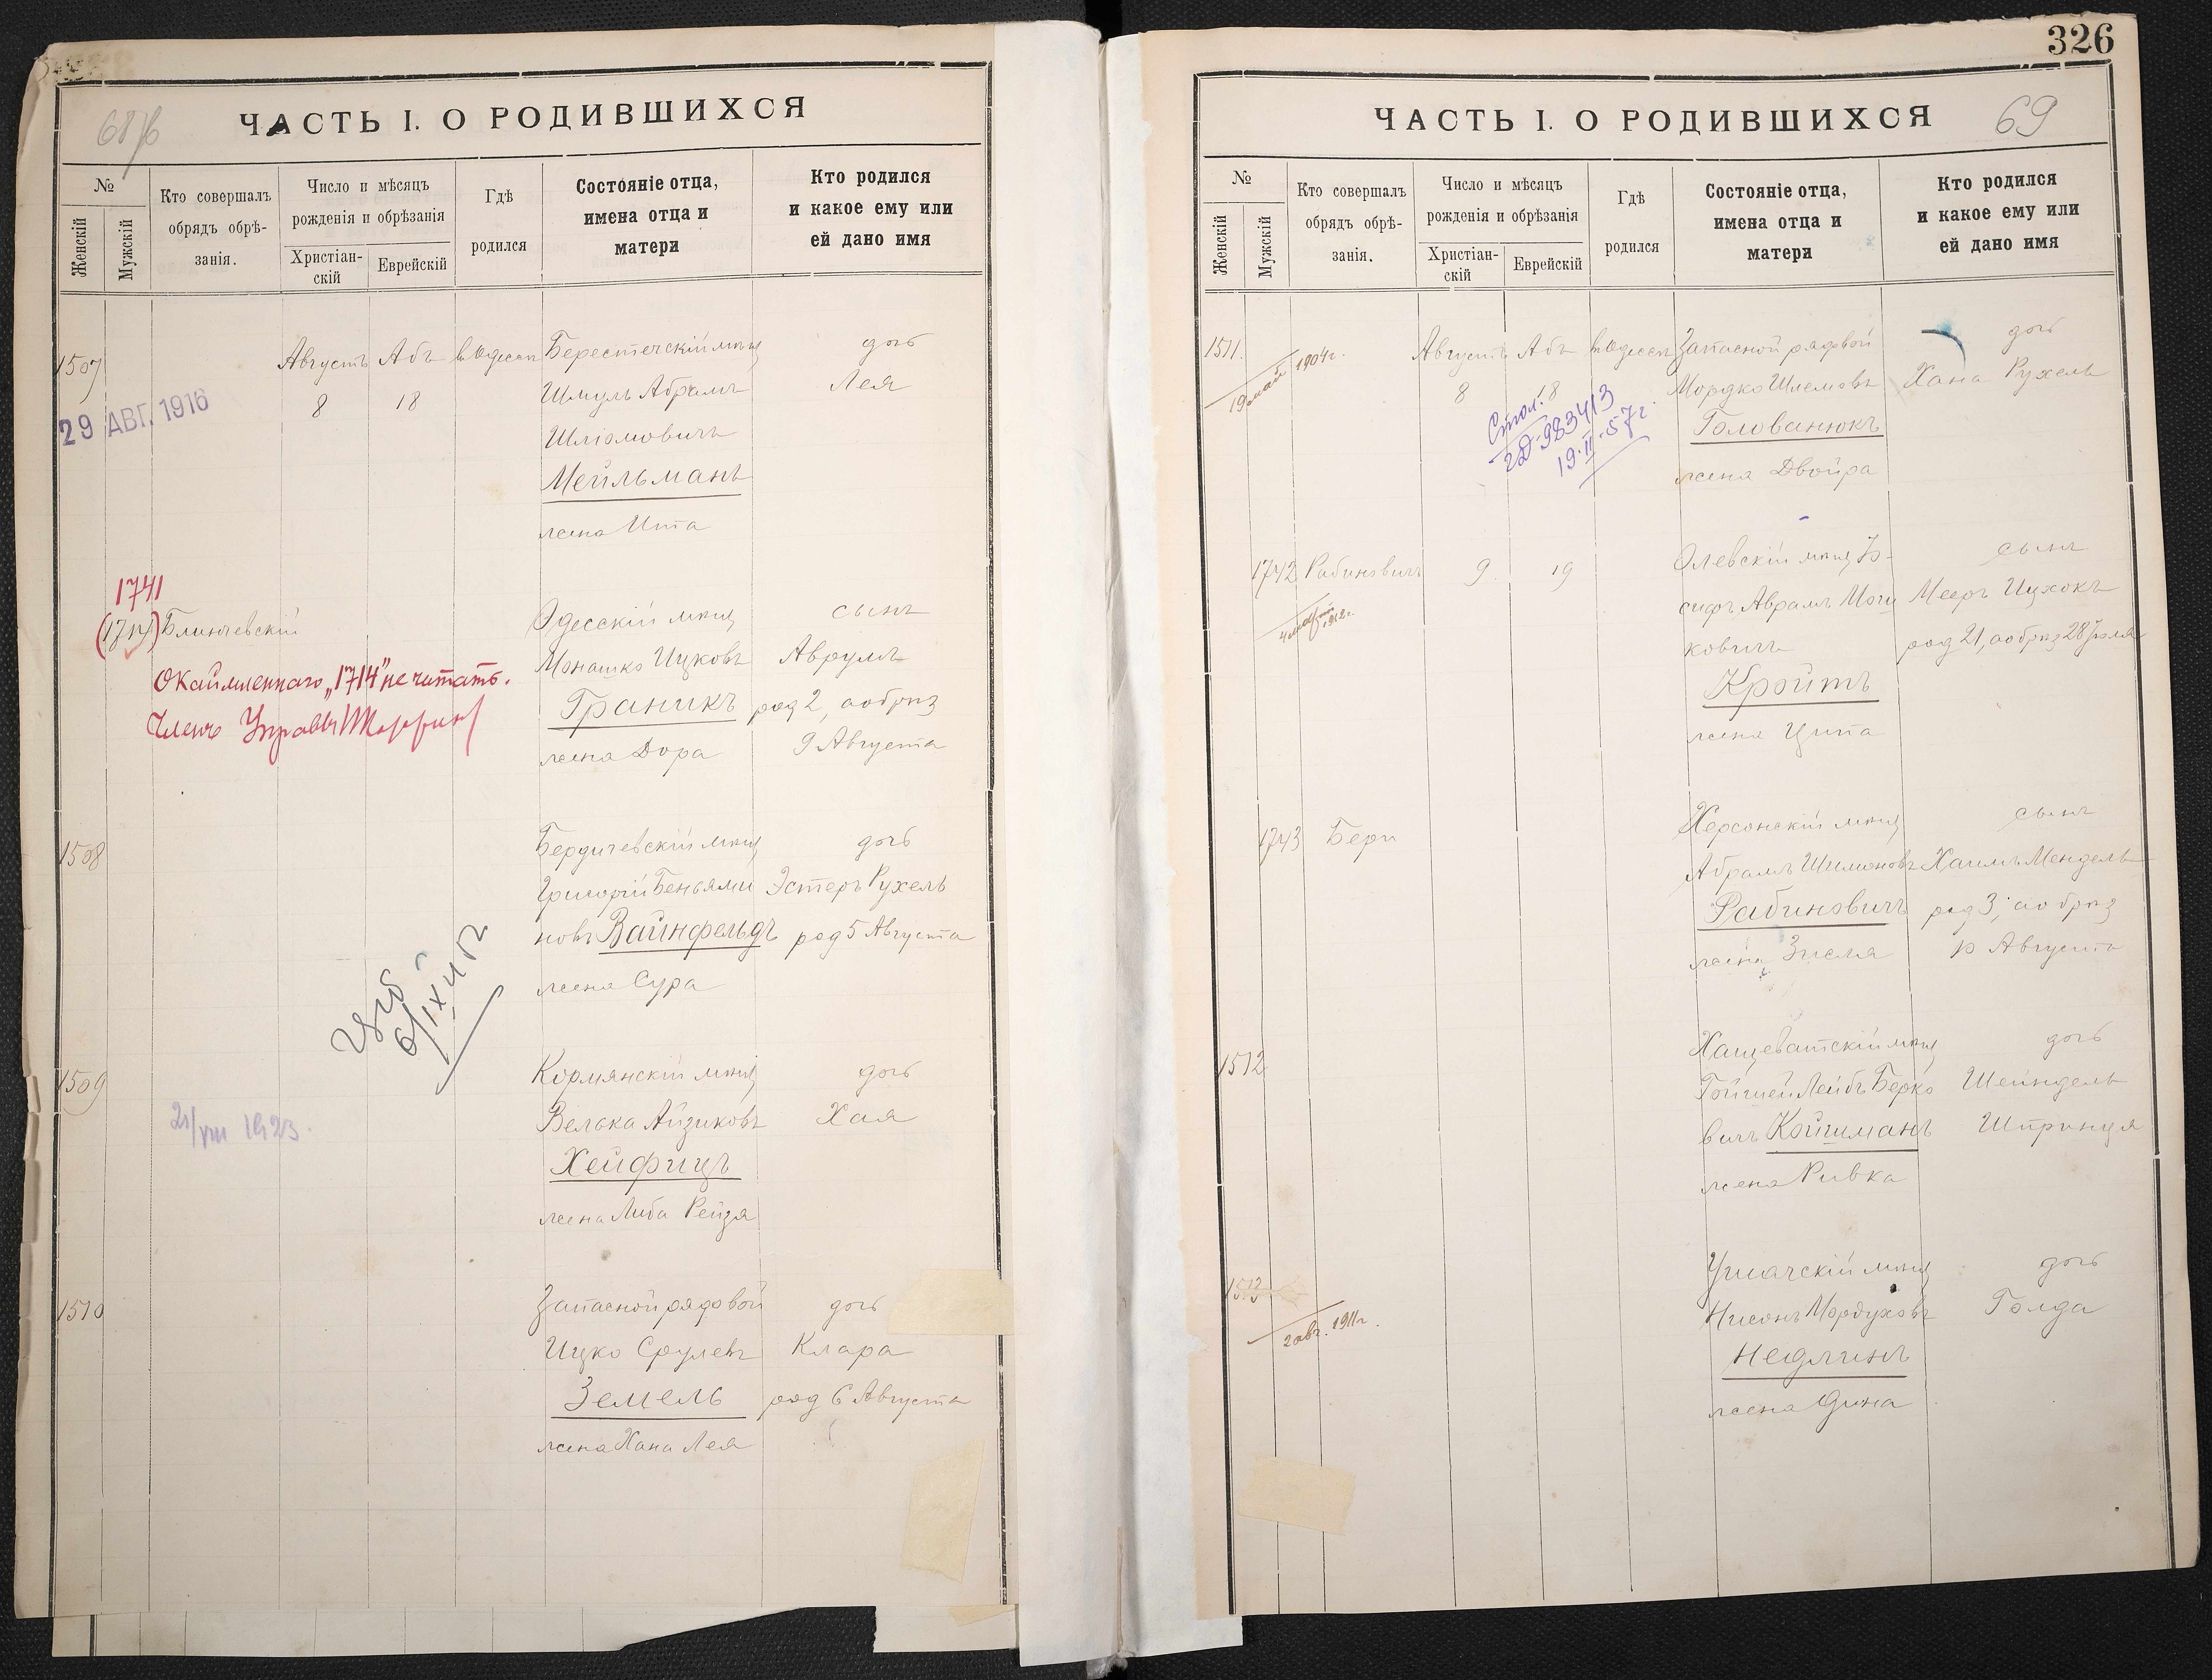 68/б
ЧАСТЬ I. О РОДИВШИХСЯ
№
Женскій
Мужскій
Кто совершалъ
обрядъ обрѣ-
занія.
Число и мѣсяцъ
рожденія и обрѣзанія
Христіан-
скій
Еврейскій
Гдѣ
родился
Состояніе отца,
имена отца и
матери
Кто родился
и какое ему или
ей дано имя
1507
Августъ Абъ въ Одессѣ Берестечскій мѣщ дочь
8 18 Шмуль Абрамъ Лея
29 АВГ. 1916
Шліомовичъ
Мейльманъ
жена Ита
1741
(1714) Блинчевскій Одесскій мѣщ сынъ
Монашко Ицковъ Аврумъ
Окаймленнаго „1714" не читать.
Граникъ род 2, а обрѣз
Членъ Управы
жена Дора 9 Августа
1508 Бердичевскій мѣщ дочь
Григорій Беньями Эстеръ Рухель
новъ Вайнфельдъ род 5 Августа
жена Сура
1509 Кормянскій мѣщ дочь
Велька Айзиковъ Хая
21/VIII 1923.
Хейфицъ
жена Либа Рейзя
1510 Запасной рядовой дочь
Ицко Срулевъ Клара
Земель род 6 Августа
жена Хана Лея
326
69
ЧАСТЬ I. О РОДИВШИХСЯ
№
Женскій
Мужскій
Кто совершалъ
обрядъ обрѣ-
занія.
Число и мѣсяцъ
рожденія и обрѣзанія
Христіан-
скій
Еврейскій
Гдѣ
родился
Состояніе отца,
имена отца и
матери
Кто родился
и какое ему или
ей дано имя
1511. Августъ Абъ въ Одессѣ Запасной рядовой дочь
19 май 1904г.
8 18 Мордко Шлемовъ Хана Рухель
983413
19·II·57г.
Голованюкъ
жена Двойра
1742 Рабиновичъ 9 19 Олевскій мѣщ Іо- сынъ
сифъ Аврамъ Мош Мееръ Ицхокъ
ковичъ род 21, а обрѣз 28 Іюля
Кройтъ
жена Ципа
1743 Бери Херсонскій мѣщ сынъ
Абрамъ Шимоновъ Хаимъ Мендель
Рабиновичъ род 3, а обрѣз
жена Зисля 10 Августа
1512 Хащеватскій мѣщ дочь
Гойшей Лейбъ Берко Шейндель
вичъ Койшманъ Шпринця
жена Ривка
1513 Ушачскій мѣщ дочь
Нисонъ Мордуховъ Голда
2 авг. 1911г.
Недлинъ
жена Дина